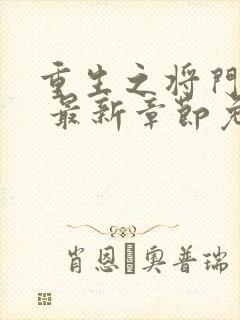 重生之将門
最新章節免
肖恩·奧普瑞